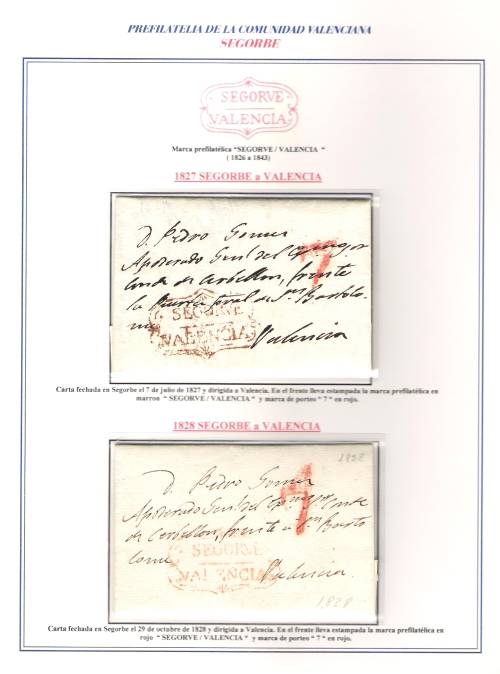 PREFILATELIA DE LA COMUNIDAD VALENCIANA
SEGORBE
SEGORVE
VALENCIA
Marca prefilatélica "SEGORVE / VALENCIA "
( 1826 a 1843)
1827 SEGORBE a VALENCIA
D. Pedro Gomez
7
Apoderado Genl del
de Cerbellon, frente
la Puerta de Sn Bartolo
SEGORVE
VALENCIA
Valencia
Carta fechada en Segorbe el 7 de julio de 1827 y dirigida a Valencia. En el frente lleva estampada la marca prefilatélica en
marron " SEGORVE / VALENCIA " y marca de porteo " 7 " en rojo.
1828 SEGORBE a VALENCIA
1928
D. Pedro Gomez
7
Apoderado Genl del
de Cerbellon, frente a Sn Barto
lome
SEGORVE
VALENCIA
Valencia.
1828
Carta fechada en Segorbe el 29 de octubre de 1828 y dirigida a Valencia. En el frente lleva estampada la marca prefilatélica en
rojo " SEGORVE / VALENCIA " y marca de porteo " 7 " en rojo.